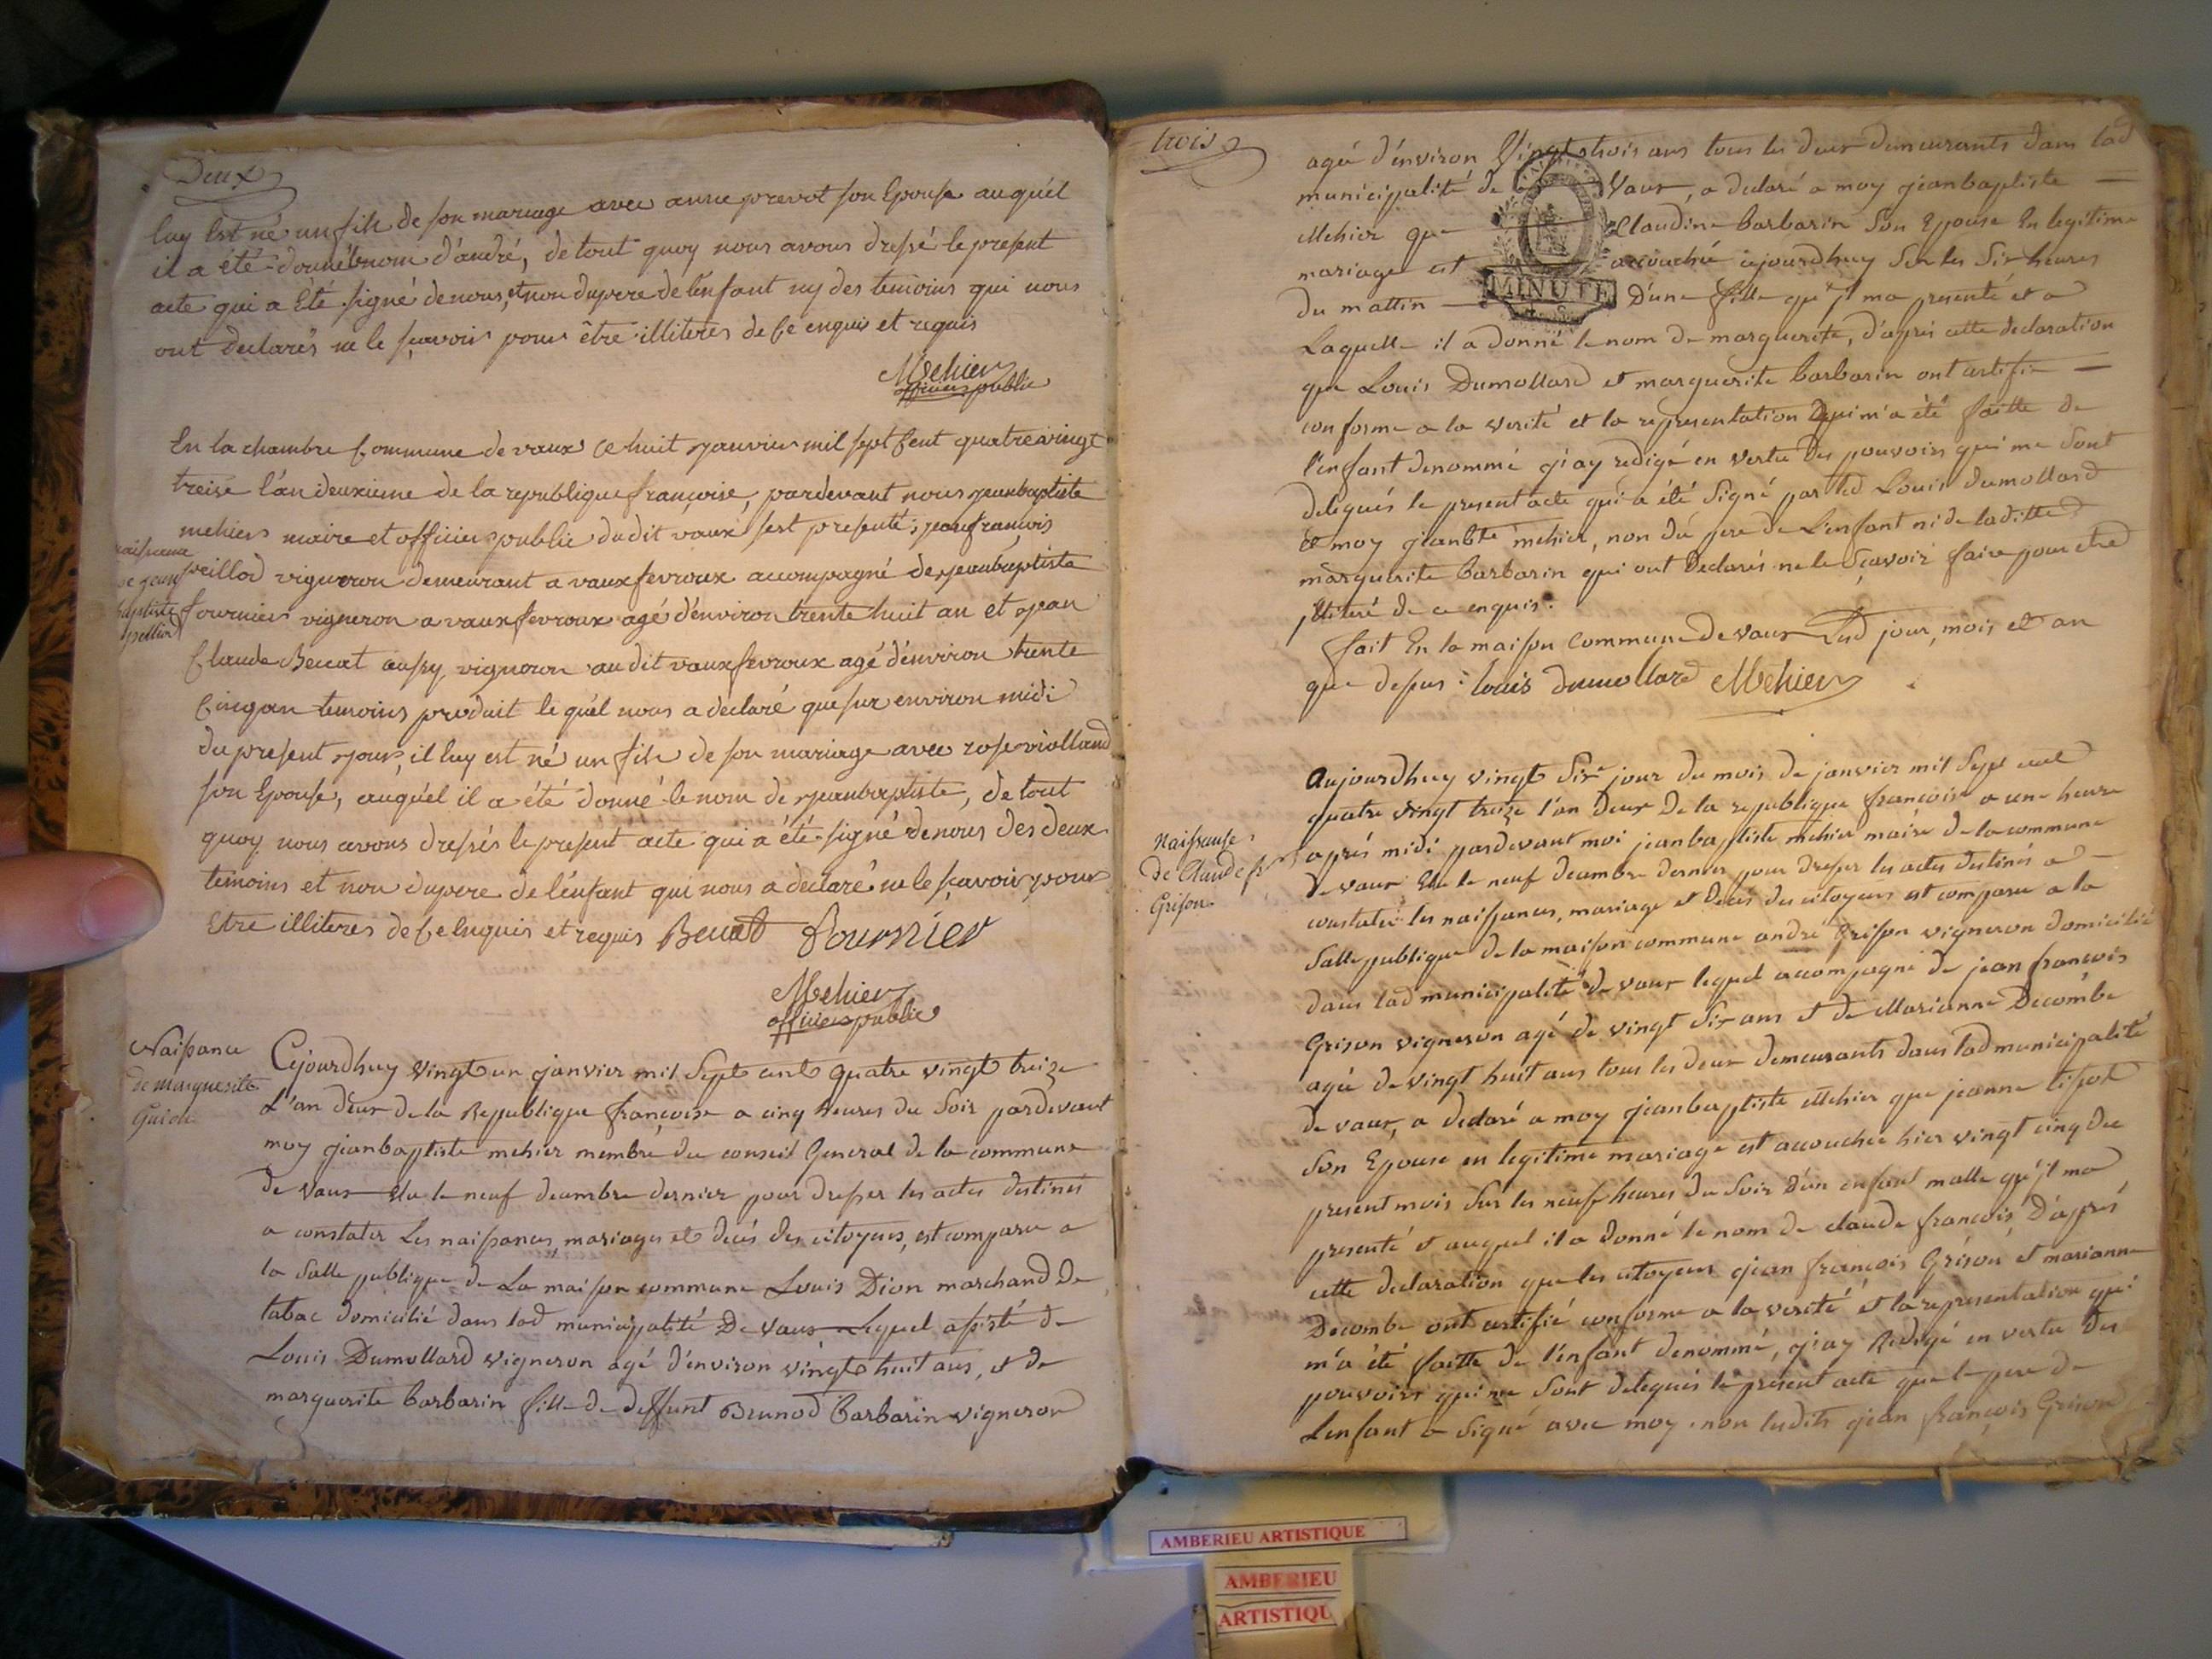 Deux
luy Est né un fils de son mariage avec anne prevot son Epouse auquél
il a été donné le nom d'andré, de tout quoy nous avons dressé le present
acte qui a Eté signé de nous, et non du pere de l'enfant ny des temoins qui nous
ont declarés ne le sçavoir pour être illiteres de Ce enquis et requis
Mehier
officier public
En la chambre Commune de vaux Ce huit janvier mil sept Cent quatre vingt
treise l'an deuxieme de la republique françoise, pardevant nous jeanbaptiste
mehier maire et officier public dudit vaux s'est presenté, jean françois
naissance
de jean
baptiste
peillod vigneron demeurant a vaux fevroux accompagné de jeanbaptiste
fournier vigneron a vaux fevroux agé d'environ trente huit an et jean
Claude Benat aussy vigneron audit vaux fevroux agé d'environ trente
Cinq an temoins produit le quél nous a declaré que sur environ midi
du present jour, il luy est né un fils de son mariage avec rose violland
son Epouse, auquél il a été donné le nom de jeanbaptiste, de tout
quoy nous avons dressés le present acte qui a été signé de nous des deux
temoins et non du pere de l'enfant qui nous a declaré ne le sçavoir, pour
Etre illiteres de Ce Enquis et requis Benat fournier
Mehier
officier public
Naissance
de Marguerite
Cejourdhuy vingt un janvier mil Sept cent quatre vingt treize
L'an deux de la Republique françoise a cinq heures du Soir pardevant
moy jeanbaptiste mehier membre du conseil General de la commune
de vaux Elu le neuf decembre dernier pour dresser les actes destinés
a constater Les naissances, mariages et decés des citoyens, est comparu a
la Salle publique de La maison commune Louis Dion marchand de
tabac domicilié dans lad municipalité De Vaux Lequel assisté de
Louis Dumollard vigneron agé d'environ vingt huit ans, et de
marguerite barbarin fille de deffunt Brunod Barbarin vigneron
trois
agée d'environ Vingt trois ans tous les deux demeurants dans lad
municipalité de Vaux, a declaré a moy jeanbaptiste
Mehier que Claudine barbarin Son Epouse En legitime
mariage est accouchée cejourdhuy Sur les Six heures
du mattin D'une fille qu'il ma presenté et a
MINUTE
Laquelle il a donné le nom de marguerite, d'aprés cette declaration
que Louis Dumollard et marguerite barbarin ont certifié
conforme a la verité et la representation qui m'a été faitte de
l'enfant denommé j'ay redigé en vertu Des pouvoirs qui me Sont
delegués le present acte qui a été Signé par led Louis dumollard
et moy jean bte mehier, non du pere de L'enfant ni de laditte
marguerite barbarin qui ont Declarés ne le Sçavoir faire pour etre
illiteré de ce enquis.
fait En la maison Commune de vaux Lesd jour, mois et an
que dessus : louis dumollard Mehier
Naissance
de Claude fr
Grison
aujourdhuy vingt Six jour du mois de janvier mil Sept cent
quatre vingt treize l'an Deux De la republique françoise a une heure
aprés midi pardevant moi jeanbaptiste mehier maire de la commune
de vaux Elu le neuf decembre dernier pour dresser les actes destinés a
constater les naissances, mariage et decés des citoyens est comparu a la
Salle publique de la maison commune andré Grison vigneron domicilié
dans lad municipalité de vaux lequel accompagné de jean françois
Grison vigneron agé de vingt Six ans et de Marianne Decombe
agée de vingt huit ans tous les deux demeurants dans lad municipalité
de vaux, a declaré a moy jeanbaptiste Mehier que jeanne
Son Epouse en legitime mariage est accouchée hier vingt cinq du
present mois Sur les neuf heures du Soir d'un enfant malle qu'il ma
presenté et auquel il a donné le nom de claude françois D'aprés
cette declaration que les citoyens jean françois Grison et marianne
Decombe ont certifié conforme a la verité et la representation qui
m'a été faitte de l'enfant denommé, j'ay Redigé en vertu des
pouvoirs qui me Sont delegués le present acte que le pere de
L'enfant a Signé avec moy. non lesdits jean françois Grison
AMBERIEU ARTISTIQUE
AMBERIEU
ARTISTIQU